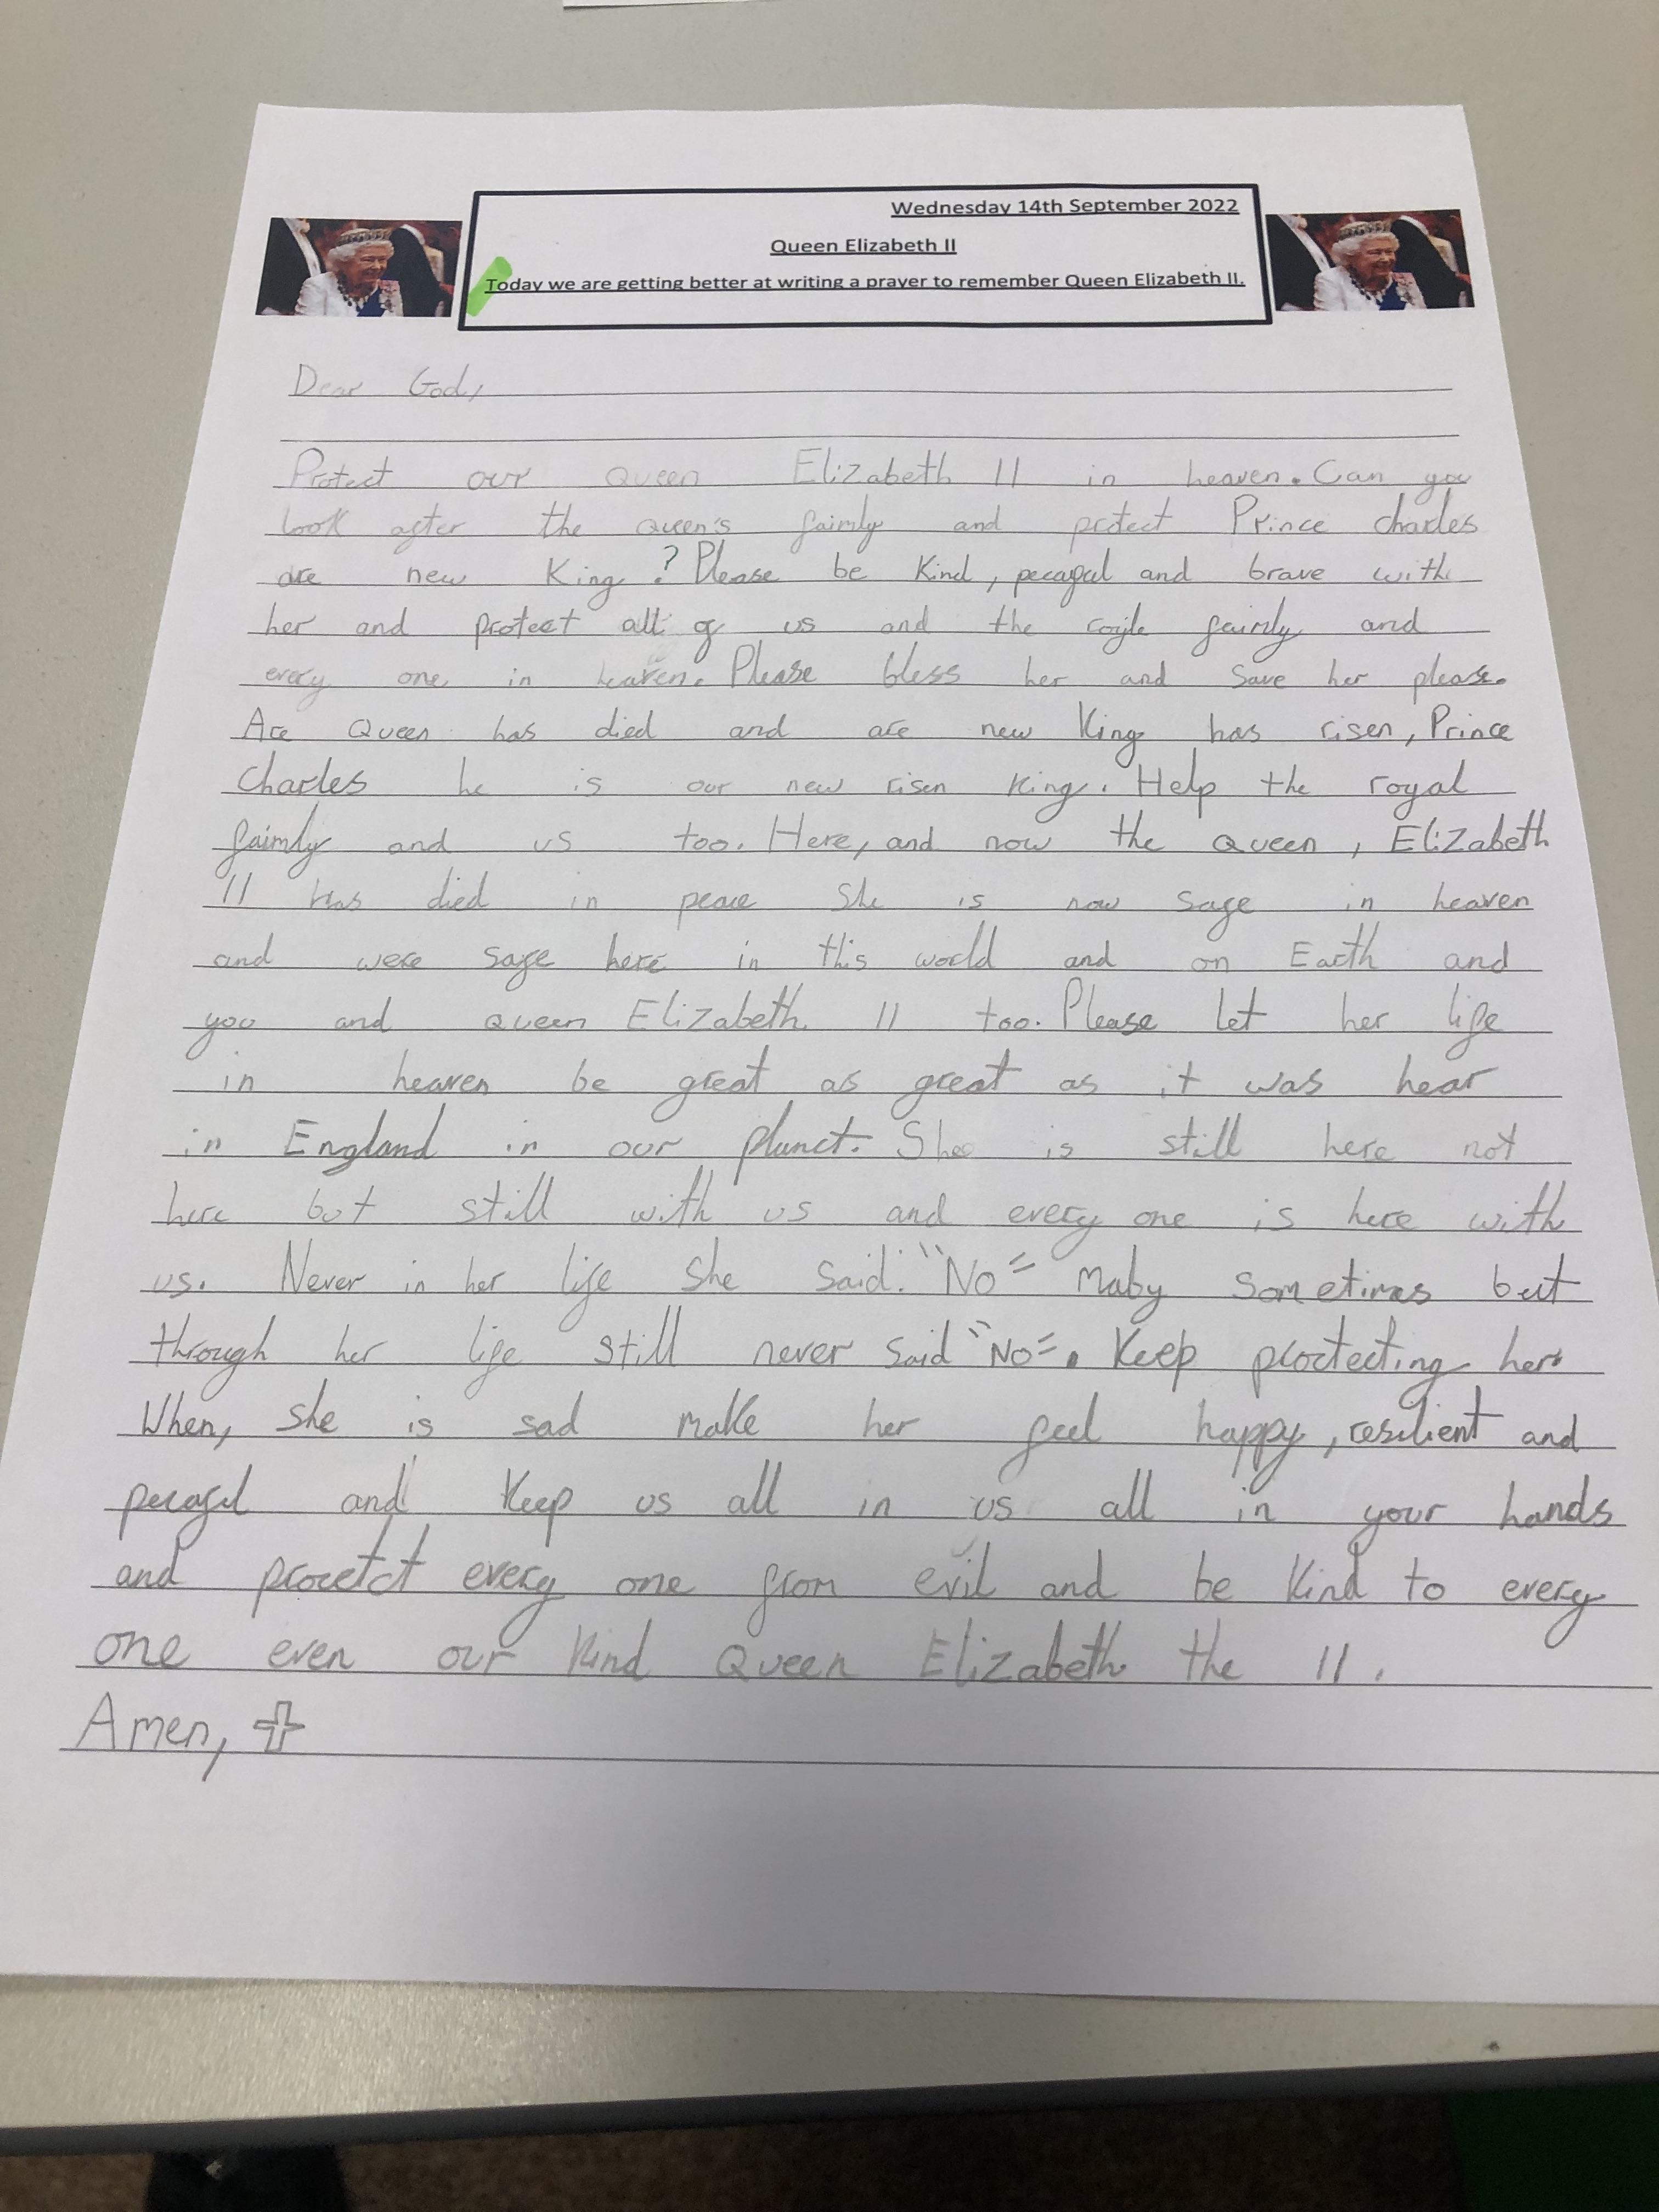 Wednesday 14th September 2022
Queen Elizabeth II
Today we are getting better at writing a prayer to remember Queen Elizabeth II.
Dear God,
Protect our Queen Elizabeth II in heaven. Can you
look after the queen's faimly and protect Prince charles
are new King? Please be Kind, pecaful and brave with
her and protect all of us and the faimly and
every one in heaven. Please bless her and save her please.
Are Queen has died and are new King has risen, Prince
Charles he is our new risen King. Help the royal
faimly and us too. Here, and now the queen, Elizabeth
II has died in peace She is now safe in heaven
and were safe here in this world and on Earth and
you and queen Elizabeth II too. Please let her life
in heaven be great as great as it was hear
in England in our planet. She is still here not
here but still with us and every one is here with
us. Never in her life she said. "No" Maby Sometimes but
through her life still never said "No". Keep proctecting her.
When, she is sad make her feel happy, resilient and
pecaful and Keep us all in us all in your hands
and procetct every one from evil and be Kind to every
one even our Kind Queen Elizabeth the II.
Amen,